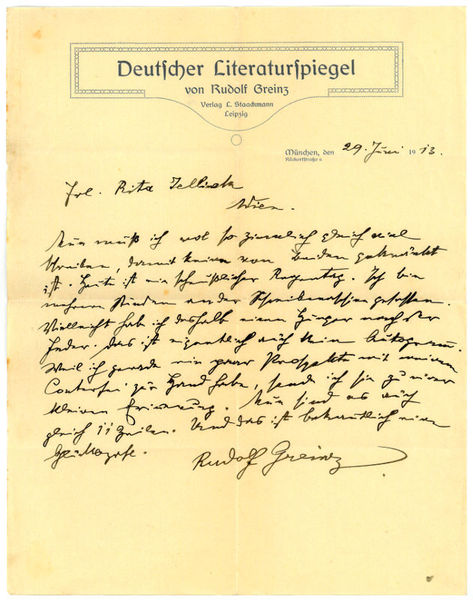 Deutscher Literaturspiegel
von Rudolf Greinz
Verlag L. Staackmann
Leipzig
München, den 29. Juni 1913.
Rückertstraße
Frl. Rita Jellinek
Wien.
Nun muß ich wol so ziemlich gleich viel
schreiben, damit keine von beiden gekränkt
ist. Heut ist ein scheußlicher Regentag. Ich bin
mehrere Stunden an der Schreibmaschine gesessen.
Vielleicht hab ich deshalb einen Hunger nach der
Feder. Das ist eigentlich auch kein Autogramm.
Weil ich gerade ein paar Prospekte mit meinem
Conterfei zur Hand habe, send ich sie zu einer
kleinen Erinnerung. Nun sind es auch
gleich 11 Zeilen. Und das ist bekanntlich eine
Rudolf Greinz